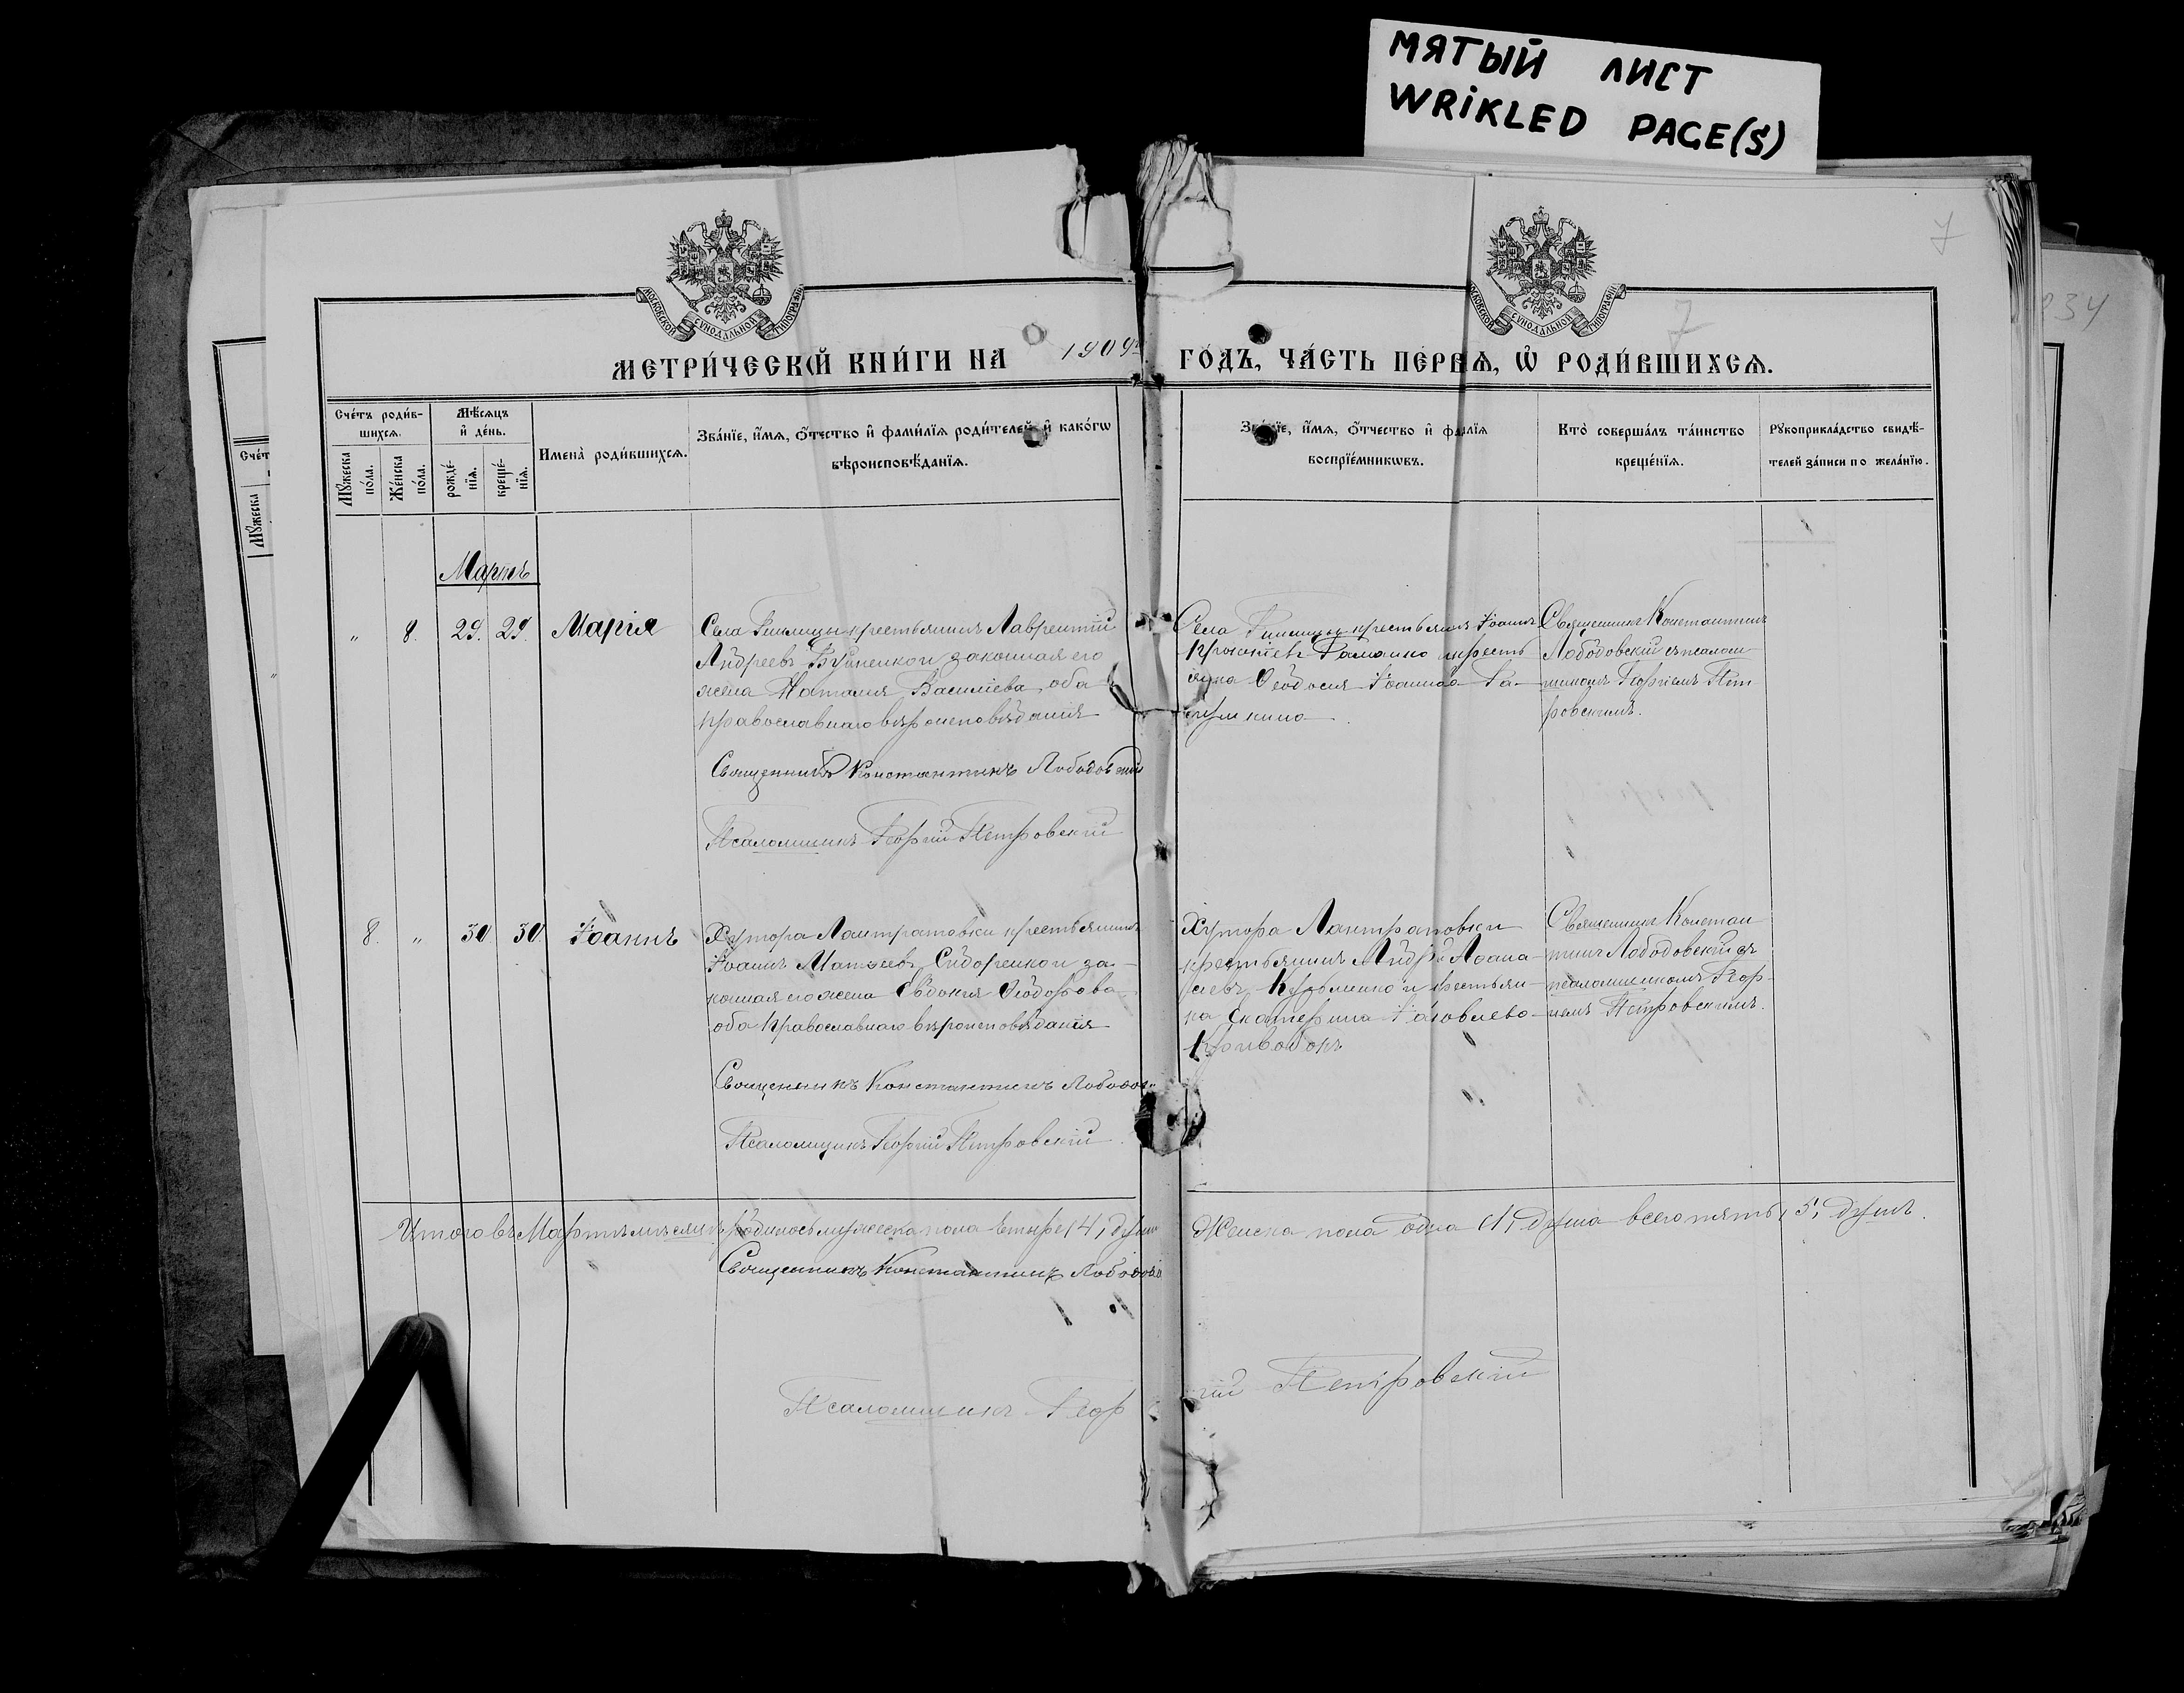 МЯТЫЙ ЛИСТ
WRiKLED PAGE(S)
7
234
МОСКОВСКОЙ СѴНОДАЛЬНОЙ ТИПОГРАФІИ
МОСКОВСКОЙ СѴНОДАЛЬНОЙ ТИПОГРАФІИ
7
МЕТРИ́ЧЕСКОЙ КНИ́ГИ НА 1909
ГО́ДЪ, ЧА́СТЬ ПЕ́РВАѦ, Ѡ҆ РОДИ́ВШИХСѦ.
Сче́тъ роди́в-
шихсѧ.
Мꙋ́жеска по́ла.
Же́нска по́ла.
Мѣ́сѧцъ
и҆ де́нь.
рожде́-
нїѧ.
креще́-
нїѧ.
И҆мена̀ роди́вшихсѧ.
Зва́нїе, и҆́мѧ, ѻ҆́тчество и҆ фами́лїѧ роди́телей, и҆ како́гѡ
вѣроисповѣ́данїѧ.
Зва́нїе, и҆́мѧ, ѻ҆́тчество и҆ фами́лїѧ
воспрїе́мникѡвъ.
Кто̀ соверша́лъ та́инство
креще́нїѧ.
Рꙋкоприкла́дство свидѣ́-
телей за́писи по жела́нїю.
Сче́т
Мꙋ́жеска
Мартъ
„ 8. 29. 29. Марія
Села крестьянинъ Лаврентій
Андреевъ законная его
жена Наталія Васильева, оба
православнаго вѣроисповѣданія
Священникъ Константинъ Лободовскій
Псаломщикъ Георгій Петровскій
Села крестьянинъ Іоаннъ
и кресть
янка Ѳеодосія Іоаннова
Священникъ Константинъ
Лободовскій съ псалом
щикомъ Георгіемъ Пет
ровскимъ.
8. „ 30 30 Іоаннъ
Хутора крестьянинъ
Іоаннъ Матѳеевъ Сидоренко и за-
конная его жена Евдокія Ѳеодорова
оба Православнаго вѣроисповѣданія
Священникъ Константинъ Лободов
Псаломщикъ Георгій Петровскій
Хутора
крестьянинъ Андрей Аѳана-
сіевъ Кузьменко и крестьян-
ка Екатерина Іаковлева
Священникъ Констан
тинъ Лободовскій съ
псаломщикомъ Геор-
гіемъ Петровскимъ.
Итого въ Мартѣ мѣсяцѣ родилось мужеска пола четыре (4) души
Женска пола одна (1) душа всего пять (5) душъ.
Священникъ Константинъ Лободов
Псаломщикъ Геор гій Петровскій